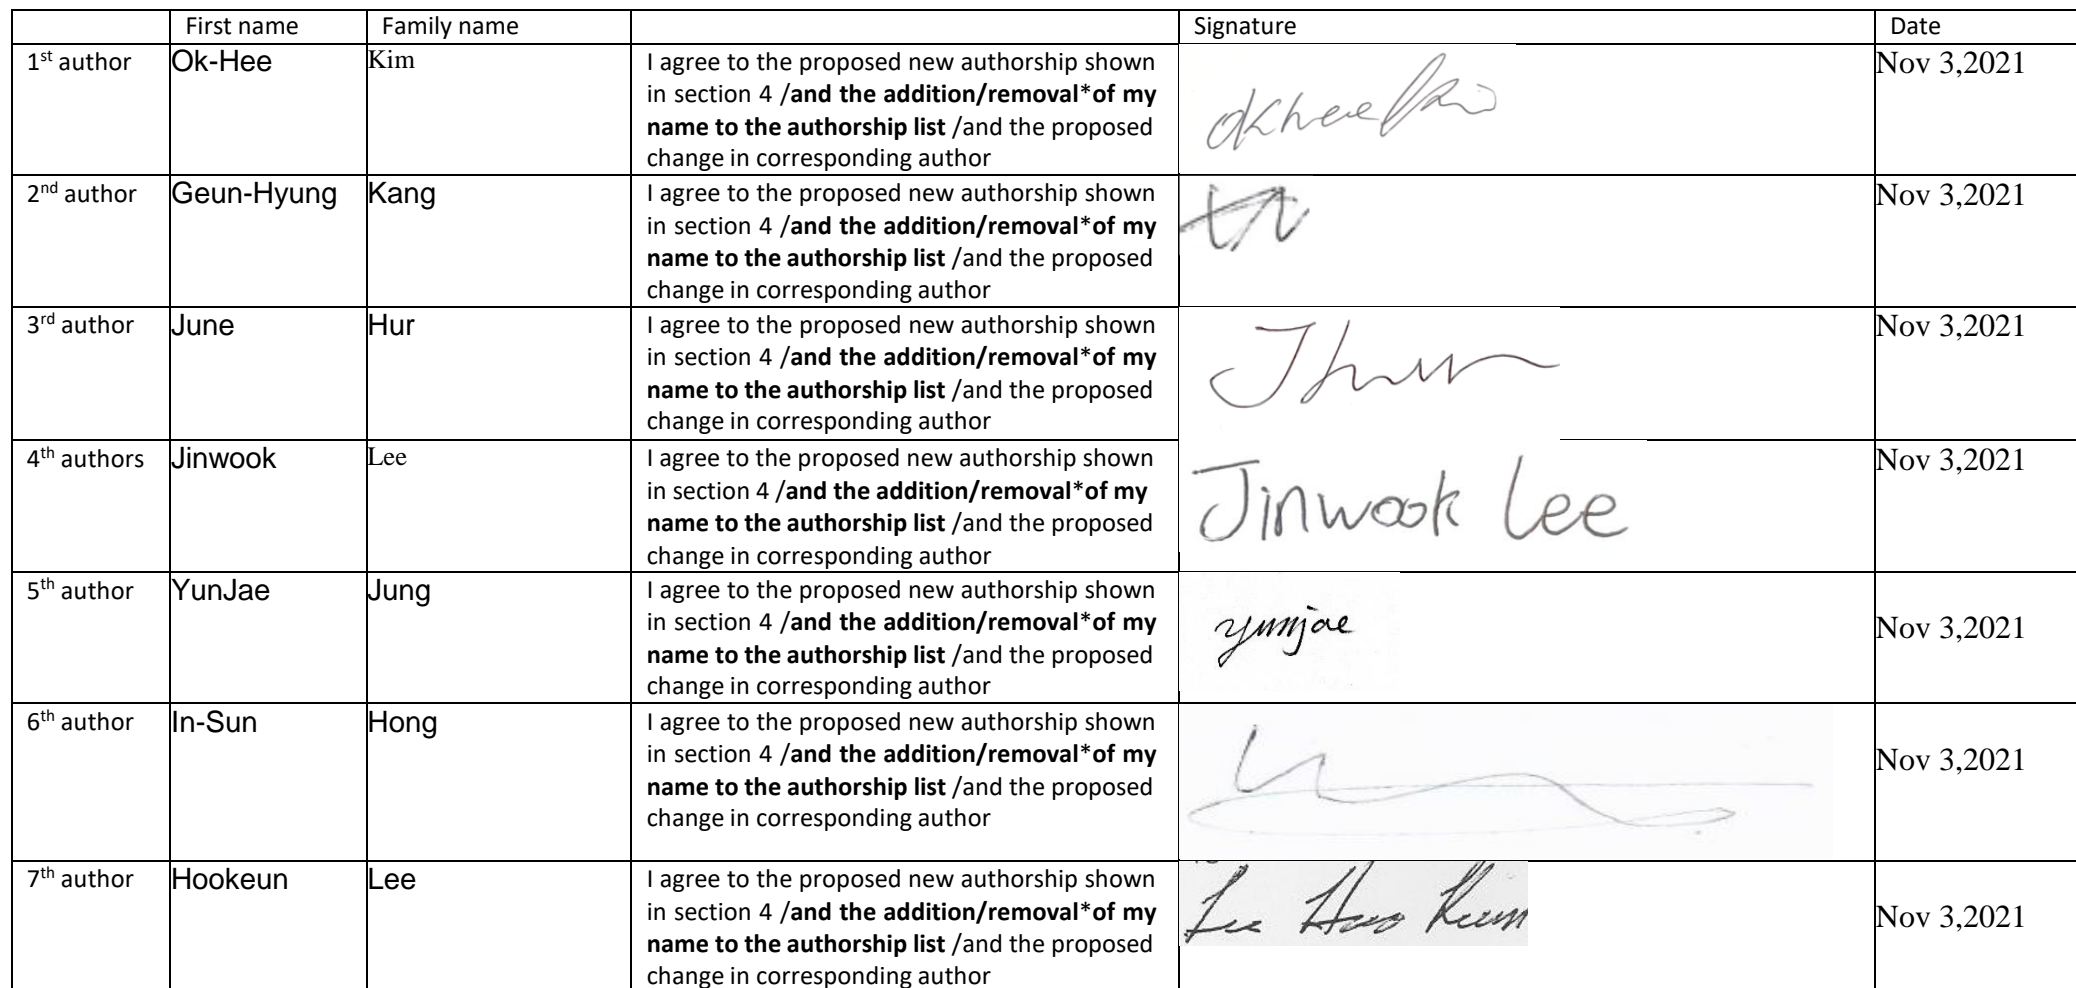 First name Family name Signature Date
1st author Ok-Hee Kim I agree to the proposed new authorship shown Nov 3,2021
in section 4 /and the addition/removal*of my
name to the authorship list /and the proposed
change in corresponding author
Okhee Kim
2nd author Geun-Hyung Kang I agree to the proposed new authorship shown Nov 3,2021
in section 4 /and the addition/removal*of my
name to the authorship list /and the proposed
change in corresponding author
3rd author June Hur I agree to the proposed new authorship shown Nov 3,2021
in section 4 /and the addition/removal*of my
name to the authorship list /and the proposed
change in corresponding author
J Hur
4th authors Jinwook Lee I agree to the proposed new authorship shown Nov 3,2021
in section 4 /and the addition/removal*of my
name to the authorship list /and the proposed
change in corresponding author
Jinwook Lee
5th author YunJae Jung I agree to the proposed new authorship shown
in section 4 /and the addition/removal*of my
name to the authorship list /and the proposed
change in corresponding author
yunjae
Nov 3,2021
6th author In-Sun Hong I agree to the proposed new authorship shown
in section 4 /and the addition/removal*of my
name to the authorship list /and the proposed
change in corresponding author
Nov 3,2021
7th author Hookeun Lee I agree to the proposed new authorship shown
in section 4 /and the addition/removal*of my
name to the authorship list /and the proposed
change in corresponding author
Lee Hoo Keun
Nov 3,2021